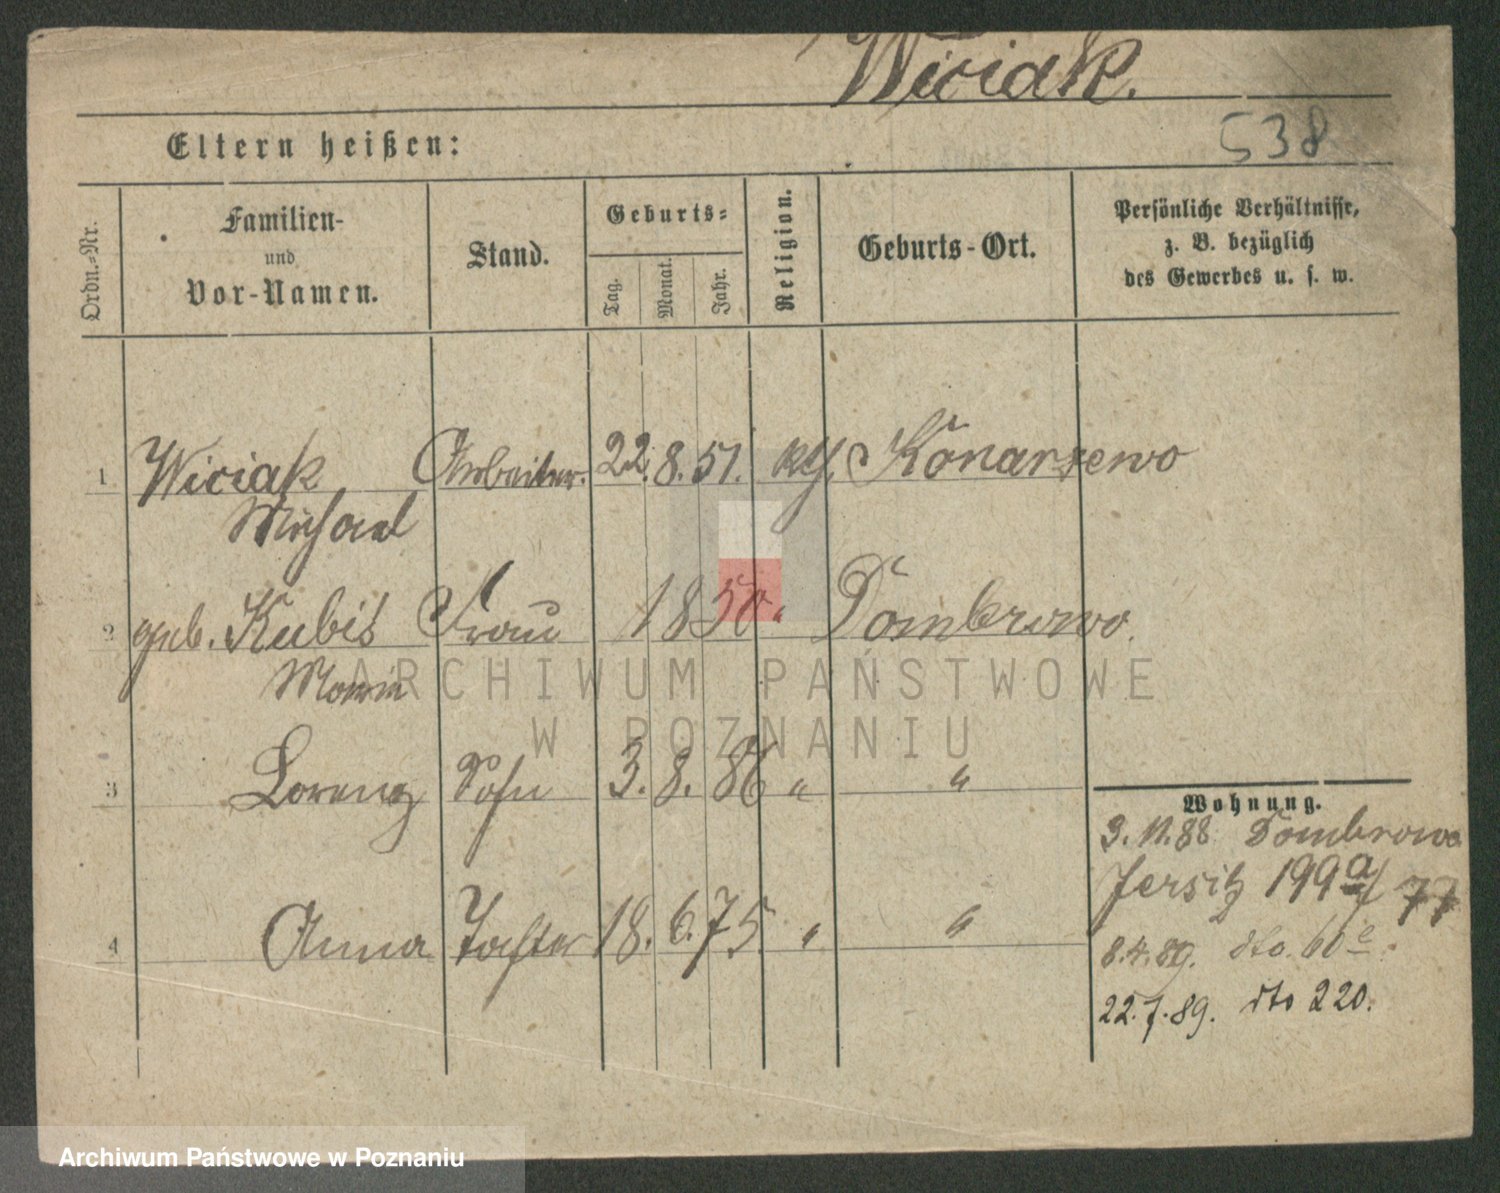 Wiciak.
538
Eltern heißen:
Ordn.-Nr.
Familien-
und
Vor-Namen.
Stand.
Geburts-
Tag.
Monat.
Jahr.
Religion.
Geburts-Ort.
Persönliche Verhältnisse,
z. B. bezüglich
des Gewerbes u. s. w.
1 Wiciak Arbeiter. 22. 8. 51. kth. Konarzewo
Michael
2 geb. Kubis Frau 1850 " Dombrowo.
Maria
3 Lorenz Sohn 3. 8. 86 " "
4 Anna Tochter 18. 6. 75 " "
Wohnung.
3.11.88 Dombrowo
Jersitz 199a/77
8.4.89. dto. 60e.
22.7.89. dto 220.
ARCHIWUM PAŃSTWOWE
W POZNANIU
Archiwum Państwowe w Poznaniu